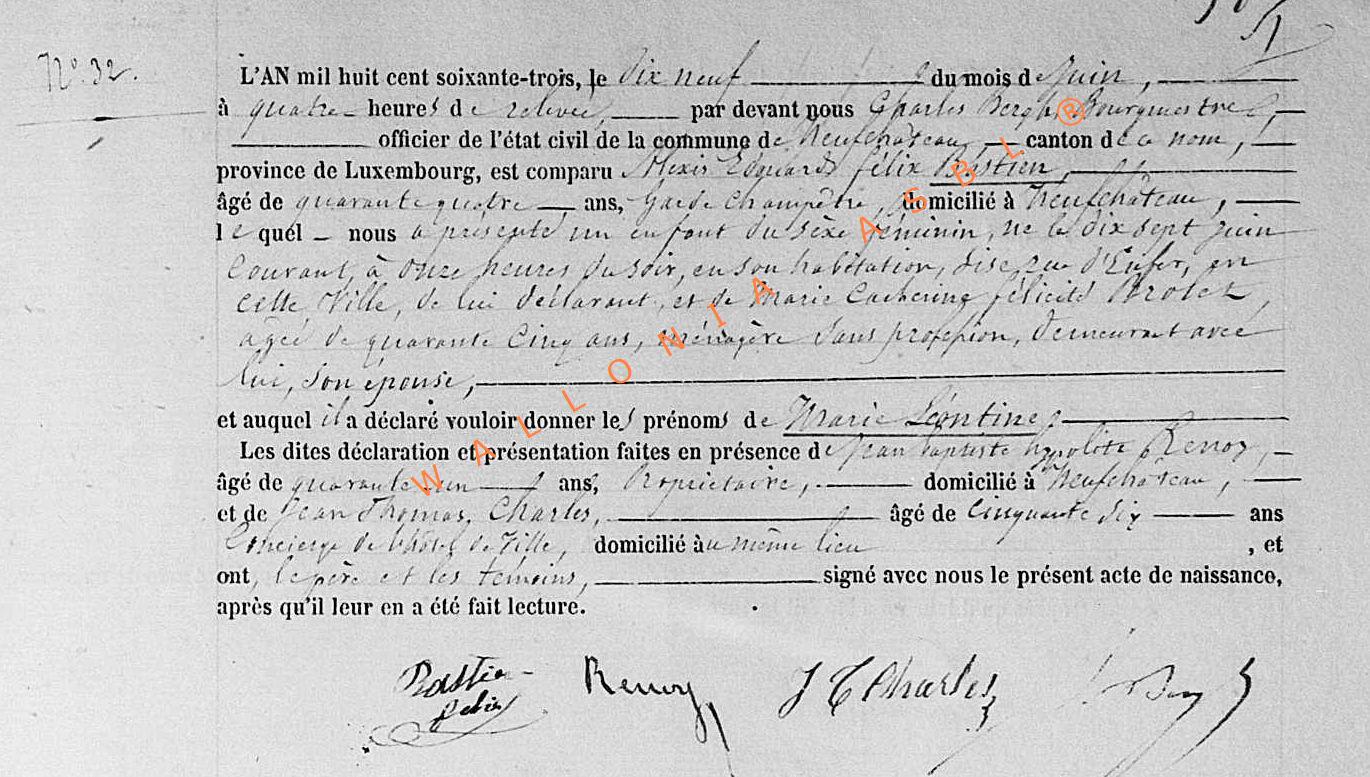 N° 32.
L'AN mil huit cent soixante-trois, le dix neuf du mois de juin,
à quatre heures de relevée, par devant nous Charles Bergh, Bourgmestre,
officier de l'état civil de la commune de Neufchâteau canton de ce nom,
province de Luxembourg, est comparu Alexis Edouard félix Bastien,
âgé de quarante quatre ans, Garde Champêtre, domicilié à Neufchâteau,
le quél nous a présenté un enfant du sèxe féminin, né le dix sept juin
Courant, à Onze heures du soir, en son habitation, sise rue d'Enfer, en
cette Ville, de lui déclarant, et de Marie Catherine félicité
agée de quarante Cinq ans, ménagère sans profession, demeurant avec
lui, son épouse,
et auquel il a déclaré vouloir donner les prénoms de Marie Léontine
Les dites déclaration et présentation faites en présence de Jean Baptiste hypolite Renoy,
âgé de quarante un ans, Propriétaire, domicilié à Neufchâteau,
et de Jean Thomas, Charles, âgé de Cinquante six ans
Concierge de l'hôtel de Ville, domicilié au même lieu, et
ont, le père et les témoins, signé avec nous le présent acte de naissance,
après qu'il leur en a été fait lecture.
Bastien Renoy J T Charles
felix
WALLONIA ASBL®